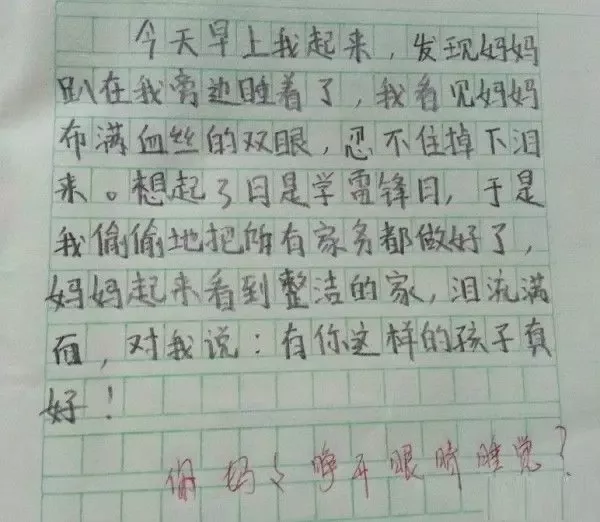 今天早上我起来，发现妈妈
趴在我旁边睡着了，我看见妈妈
布满血丝的双眼，忍不住掉下泪
来。想起3日是学雷锋日，于是
我偷偷地把所有家务都做好了，
妈妈起来看到整洁的家，泪流满
面，对我说：有你这样的孩子真
好！
你妈妈睁开眼睛睡觉？